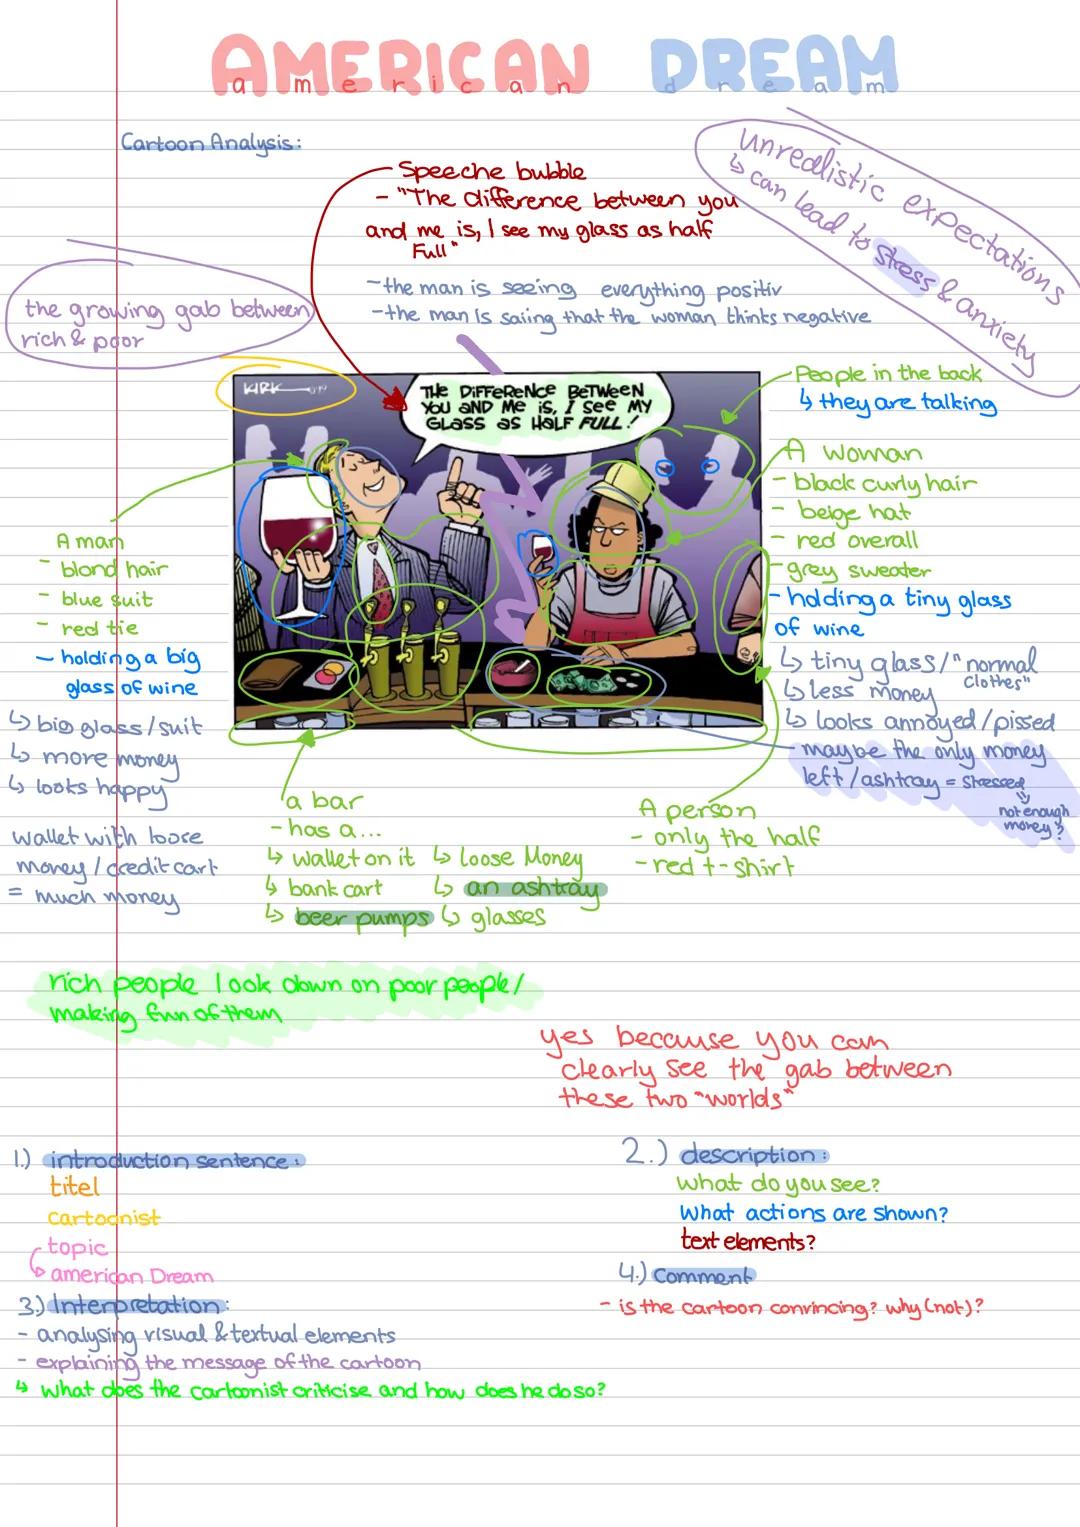 AMERICAN DREAM
american dream
Cartoon Analysis:
Speeche bubble
- "The difference between you
and me is, I see my glass as half
Full"
- the man is seeing everything positiv
- the man is saiing that the woman thinks negative
unrealistic expectations
↳ can lead to stress & anxiety
the growing gab between
rich & poor
KIRK
THE DIFFERENCE BETWEEN
YOU AND ME IS, I SEE MY
GLASS AS HALF FULL!
People in the back
↳ they are talking
A woman
- black curly hair
- beige hat
- red overall
- grey sweater
- holding a tiny glass
of wine
↳ tiny glass/"normal
clothes"
↳ less money
↳ looks annoyed/pissed
maybe the only money
left/ashtray = stressed
not enough
money?
A man
- blond hair
- blue suit
- red tie
- holding a big
glass of wine
↳ big glass/suit
↳ more money
↳ looks happy
wallet with loose
money/credit cart
= much money
a bar
- has a...
↳ wallet on it ↳ loose Money
↳ bank cart ↳ an ashtray
↳ beer pumps ↳ glasses
A person
- only the half
- red t-shirt
rich people look down on poor people/
making fun of them
yes because you can
clearly see the gab between
these two "worlds"
1.) introduction sentence:
titel
cartoonist
topic
↳ american Dream
2.) description:
what do you see?
What actions are shown?
text elements?
3.) Interpretation:
- analysing visual & textual elements
- explaining the message of the cartoon
↳ what does the cartoonist criticise and how does he do so?
4.) Comment
- is the cartoon convincing? why (not)?